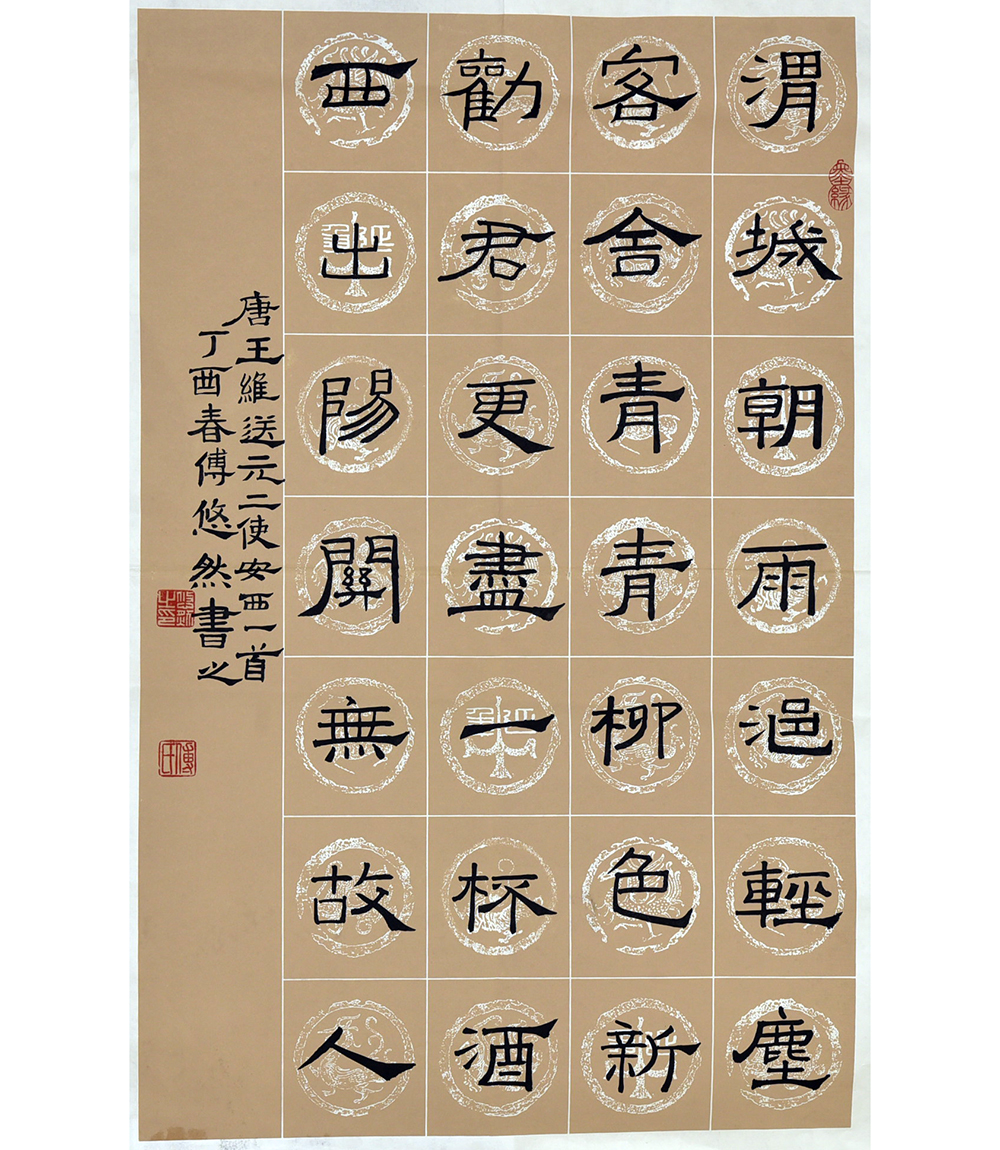 渭城朝雨浥輕塵
客舍青青柳色新
勸君更盡一杯酒
西出陽關無故人
唐王維送元二使安西一首
丁酉春傅悠然書之
傅氏